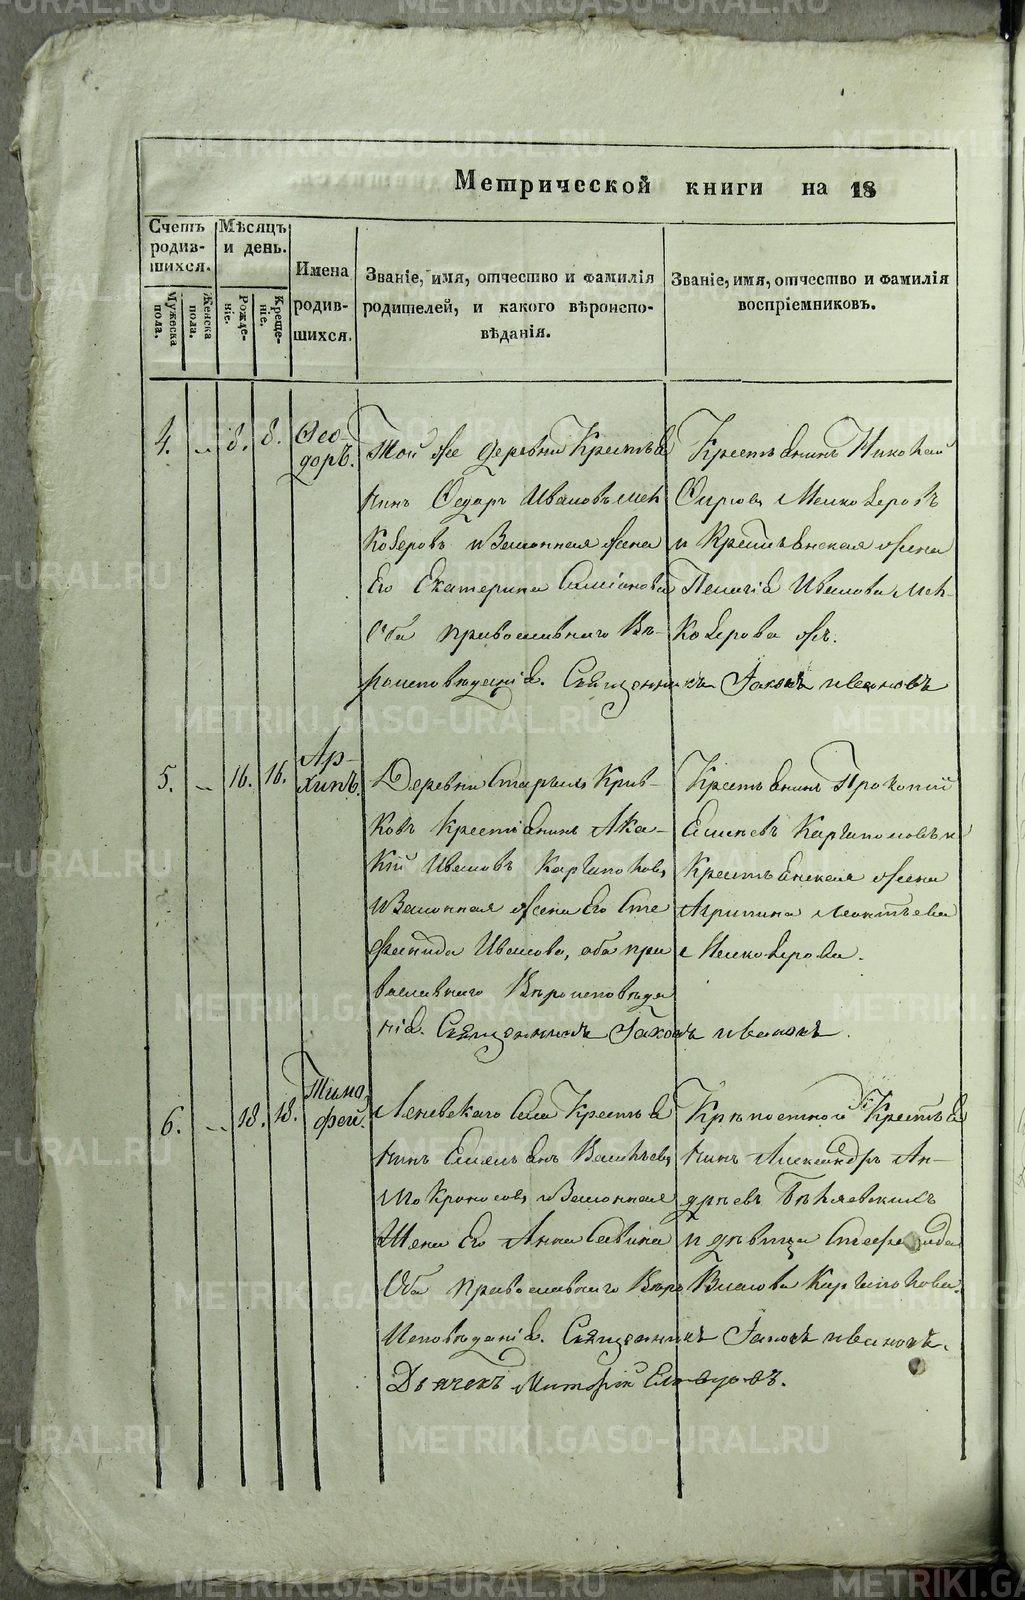 Метрической книги на 18
Счетъ родив-шихся.
Мѣсяцъ и день.
Мужеска пола.
Женска пола.
Рожде-ніе.
Креще-ніе.
Имена родив-шихся.
Званіе, имя, отчество и фамилія
родителей, и какого вѣроиспо-
вѣданія.
Званіе, имя, отчество и фамилія
воспріемниковъ.
4. 8. 8. Ѳео-
доръ.
Той же деревни Крестья
нинъ Ѳедоръ Ивановъ
и законная жена
Его Екатерина
Оба православнаго Вѣ-
роисповѣданія. Священникъ Іаковъ Ивановъ
Крестьянинъ Николай
и Крестьянская жена
Пелагія Иванова
5. 16. 16. Ар-
хипъ.
Деревни Старыхъ Крив-
ковъ Крестьянинъ Ака-
кій Ивановъ
и законная жена Его Сте
фанида Иванова, оба пра
вославнаго Вѣроисповѣда
нія. Священникъ Іаковъ Ивановъ.
Крестьянинъ Прокопій
Крестьянская жена
Агрипина Леонтьева
6. 18. 18. Тимо
фей.
Леневскаго Села Крестья
нинъ Емельянъ Васильевъ
Мокроносовъ и законная
Жена Его Анна Савина
Оба православнаго Вѣро
Исповѣданія. Священникъ Іаковъ Ивановъ.
Дьячекъ
Крѣпостной Крестья
нинъ Александръ Ан-
дреевъ
и дѣвица Стефанида
Власова
METRIKI.GASO-URAL.RU